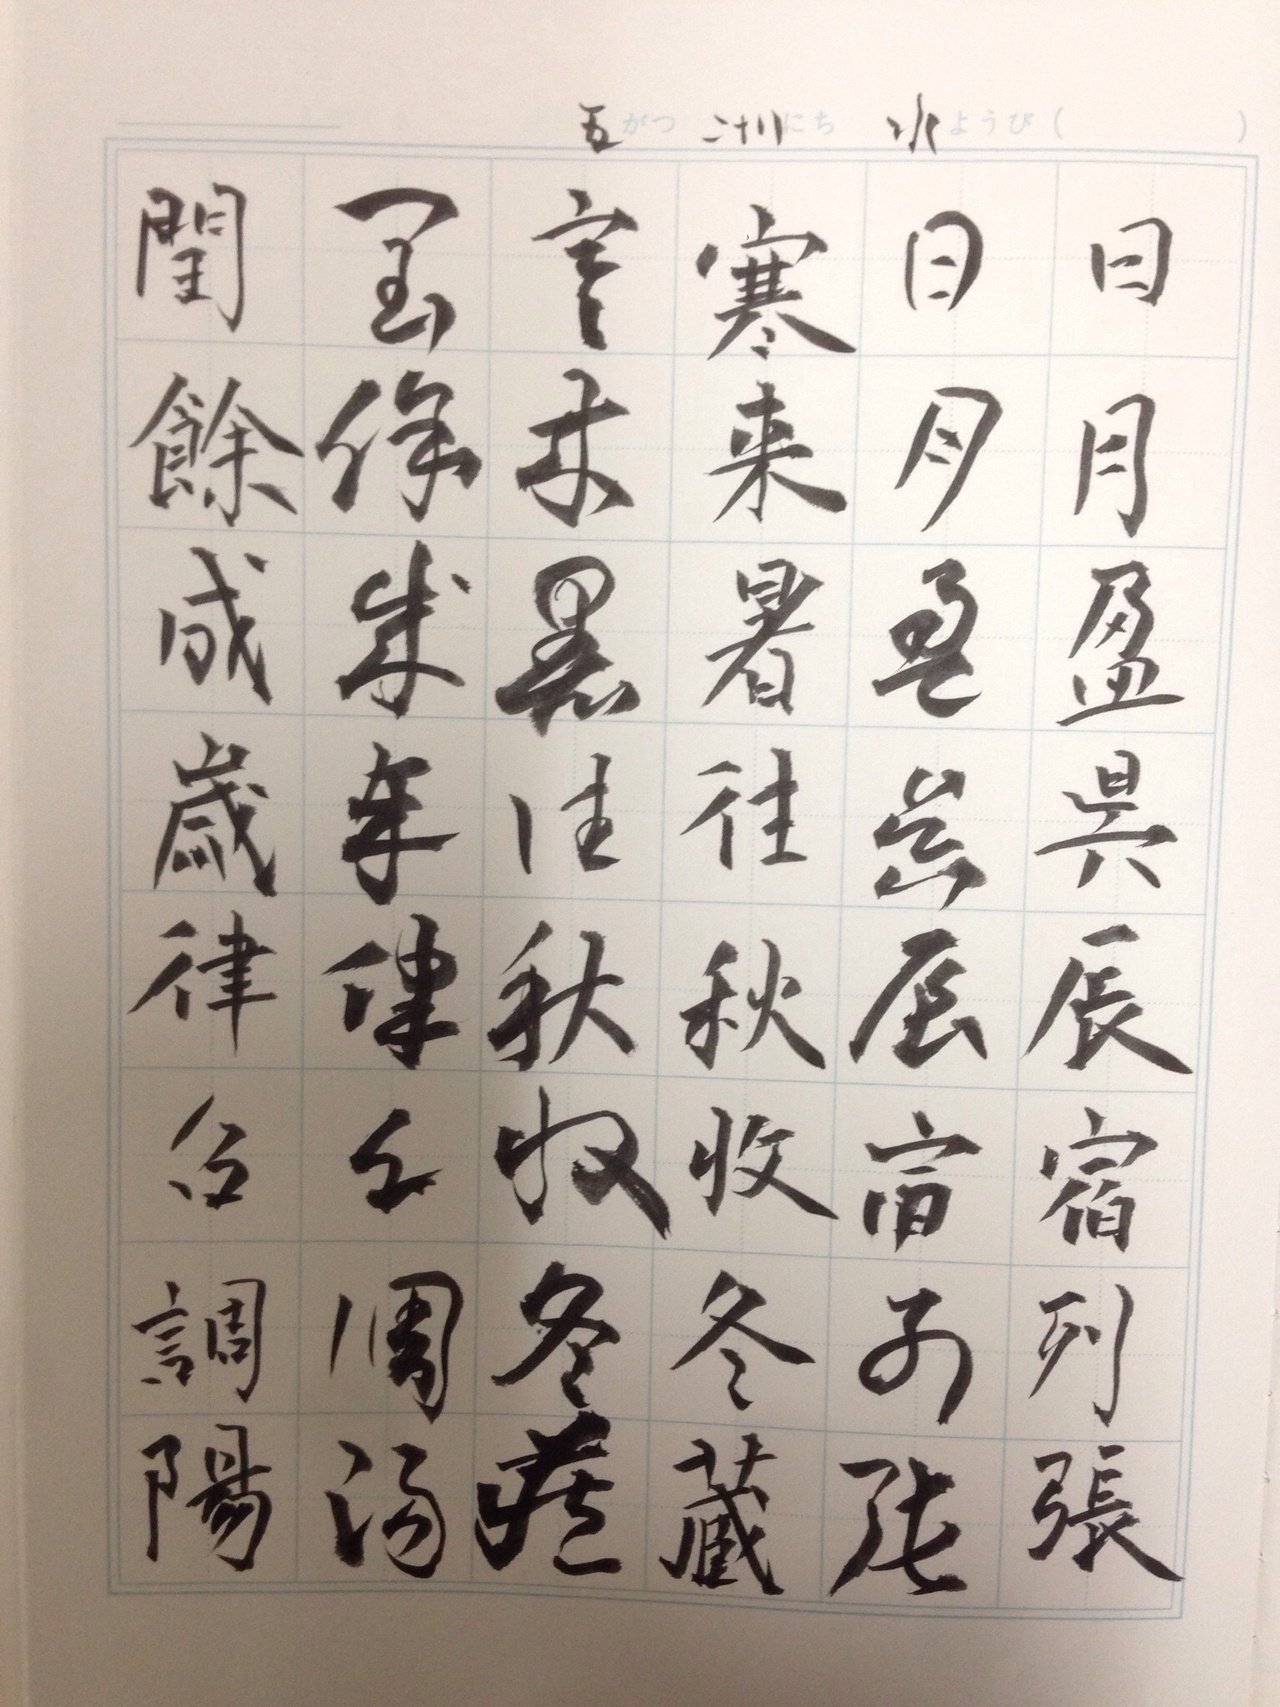 五がつ 二十八にち 水ようび ( )
日月盈昃辰宿列張
日月盈昃辰宿列張
寒来暑往秋收冬蔵
寒来暑往秋收冬蔵
閏餘成歳律呂調陽
閏餘成歳律呂調陽